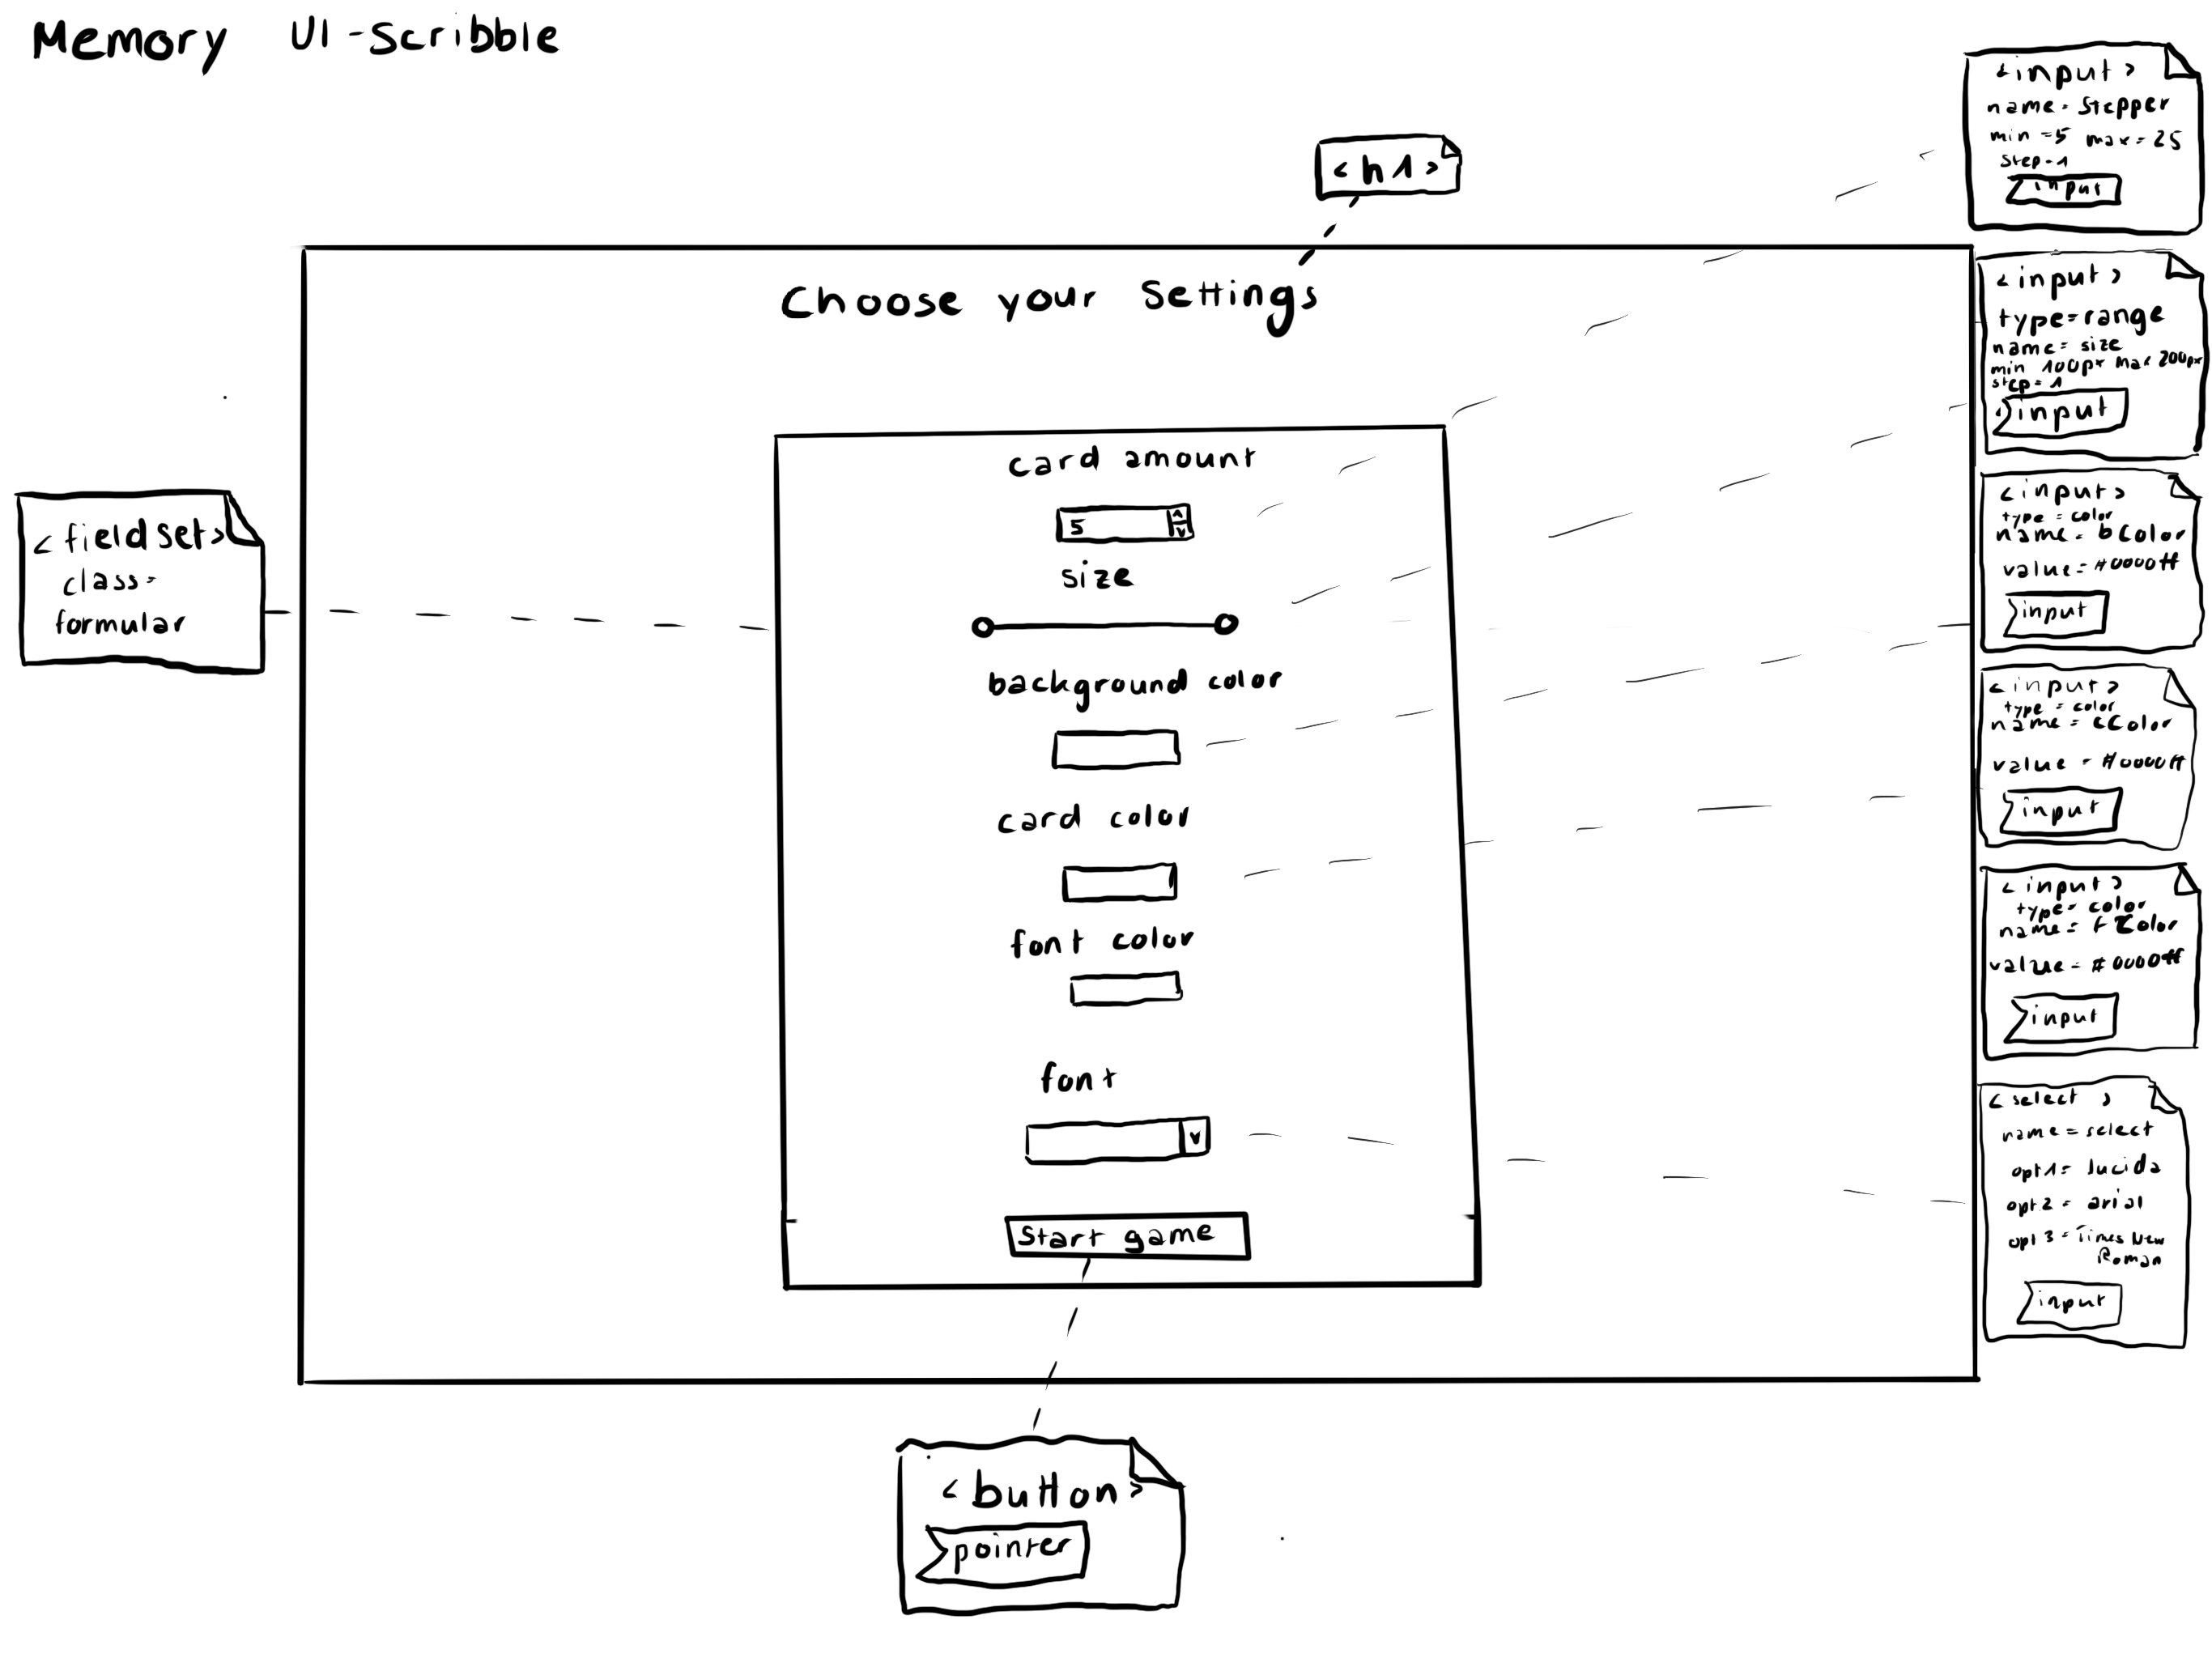 Memory UI-Scribble
<h1>
Choose your Settings
card amount
5
size
background color
card color
font color
font
v
Start game
<fieldset>
class=
formular
<button>
pointer
<input>
name = Stepper
min =5 max = 25
step=1
input
<input>
type=range
name= size
min 100px max 200px
step=1
input
<input>
type = color
name = bColor
value = #0000ff
input
<input>
type = color
name = cColor
value = #0000ff
input
<input>
type= color
name =
value = #0000ff
input
<select >
name = select
opt1= lucida
opt2 = arial
opt3 = Times New
Roman
input